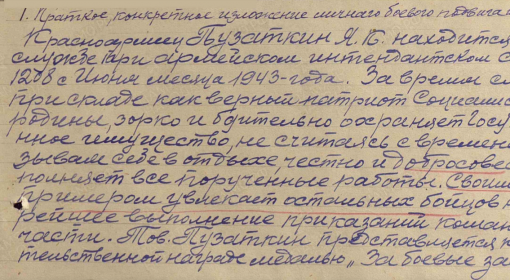 1. Краткое, конкретное изложение личного боевого подвига
Красноармеец Пузаткин Я.К. находится
службе при армейском интендантском с
1208 с Июня месяца 1943-года. За время сл
при складе как верный патриот Социалис
родины, зорко и бдительно охраняет госу
нное имущество, не считаясь с времене
зывам себе в отдыхе, честно и добросовес
полняет все порученные работы. Своим
примером увлекает остальных бойцов н
рейшее выполнение приказаний коман
части. Тов. Пузаткин представляется к
тельственной награде медалью "За боевые за